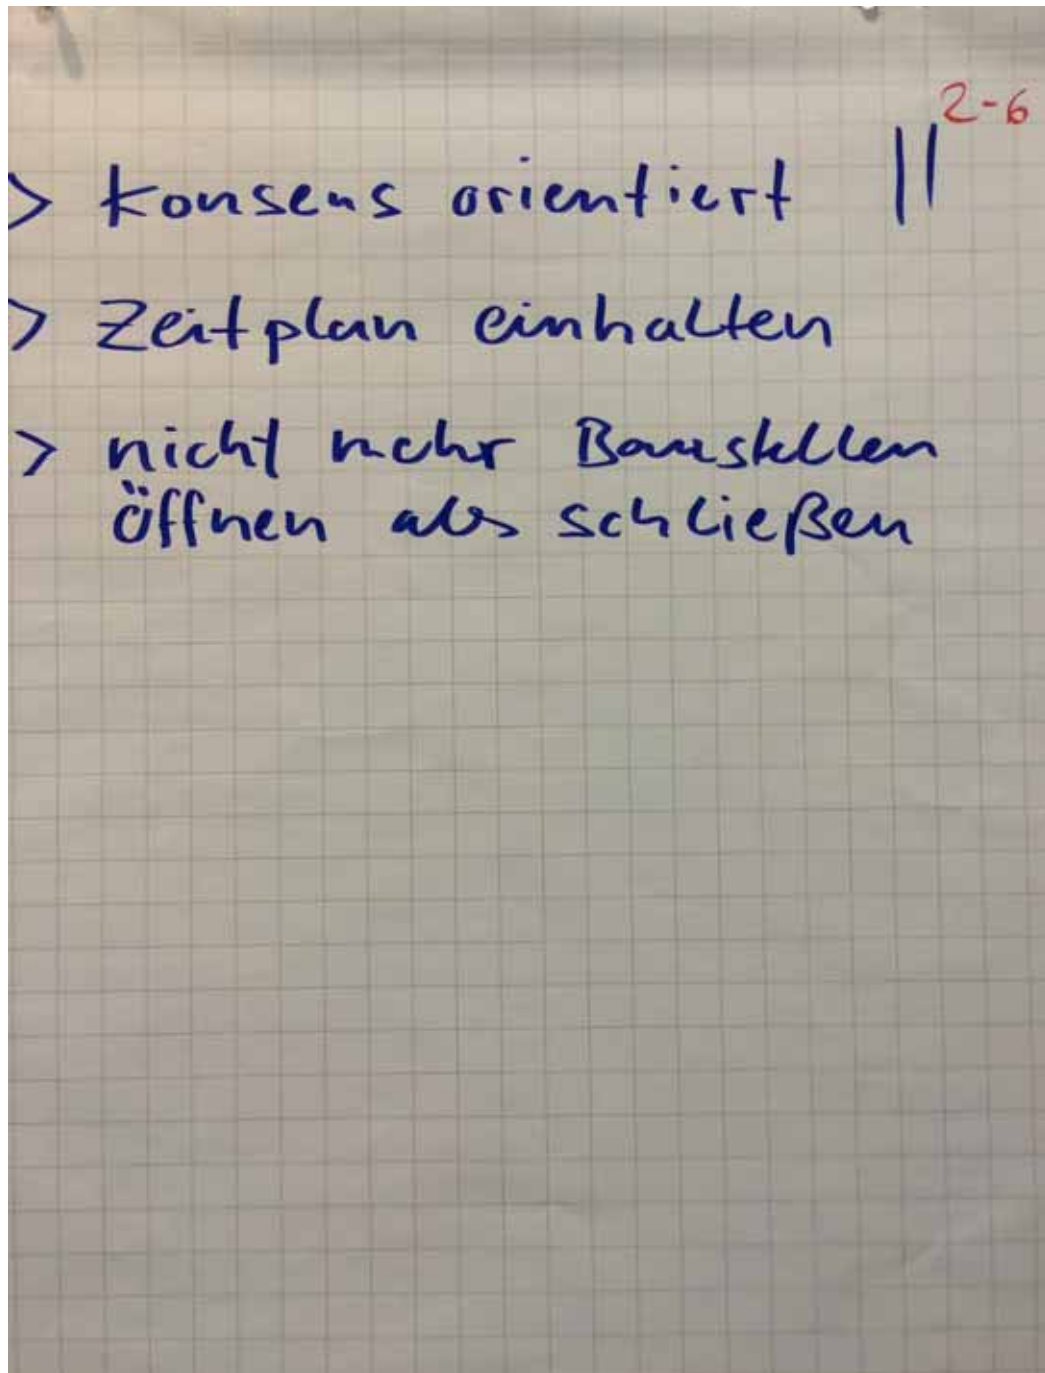 2-6
> Konsens orientiert ||
> Zeitplan einhalten
> nicht mehr Baustellen
öffnen als schließen